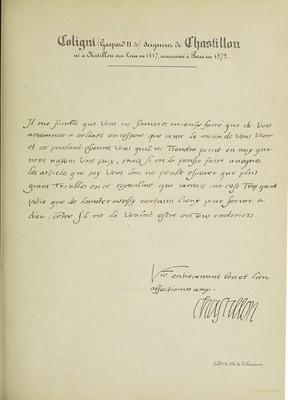 Coligni (Gaspard II de) Seigneur de Chastillon
né à Châtillon sur Loin en 1517, assassiné à Paris en 1572.
Il me semble que vous ne pouvies mieulx faire que de vous
acheminer a orleans ou jespere que
et ce pendant asseures vous quil ne tiendra point en moy que
nous nayons une paix, mais si on la pense faire avecques
les articles que jay veus lon ne peult esperer que plus
grans troubles en ce royaulme que jamais car cest trop grand
pitie que de limiter certains lieux pour servir a
dieu, come sil ne le vouloit estre en tous endroicts.
Vre entierement bon et bien
affectionne amy
Chastillon